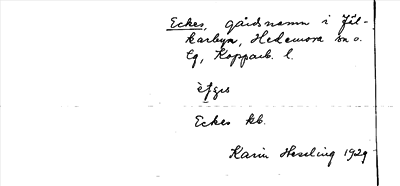 Eckes, gårdsnamn i Jäl-
karbyn, Hedemora sn o.
lg, Kopparb. l.
Eckes kb.
Karin Hesseling 1929